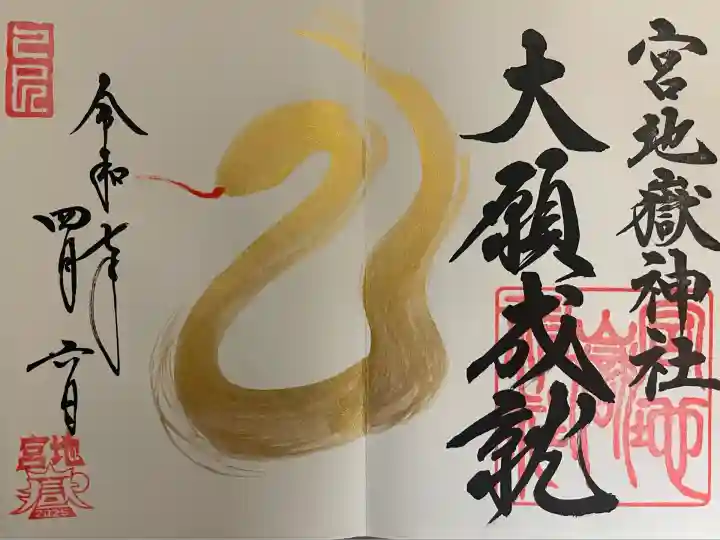 宮地嶽神社
大願成就
令和七年
四月六日
己巳
宮地嶽
2025